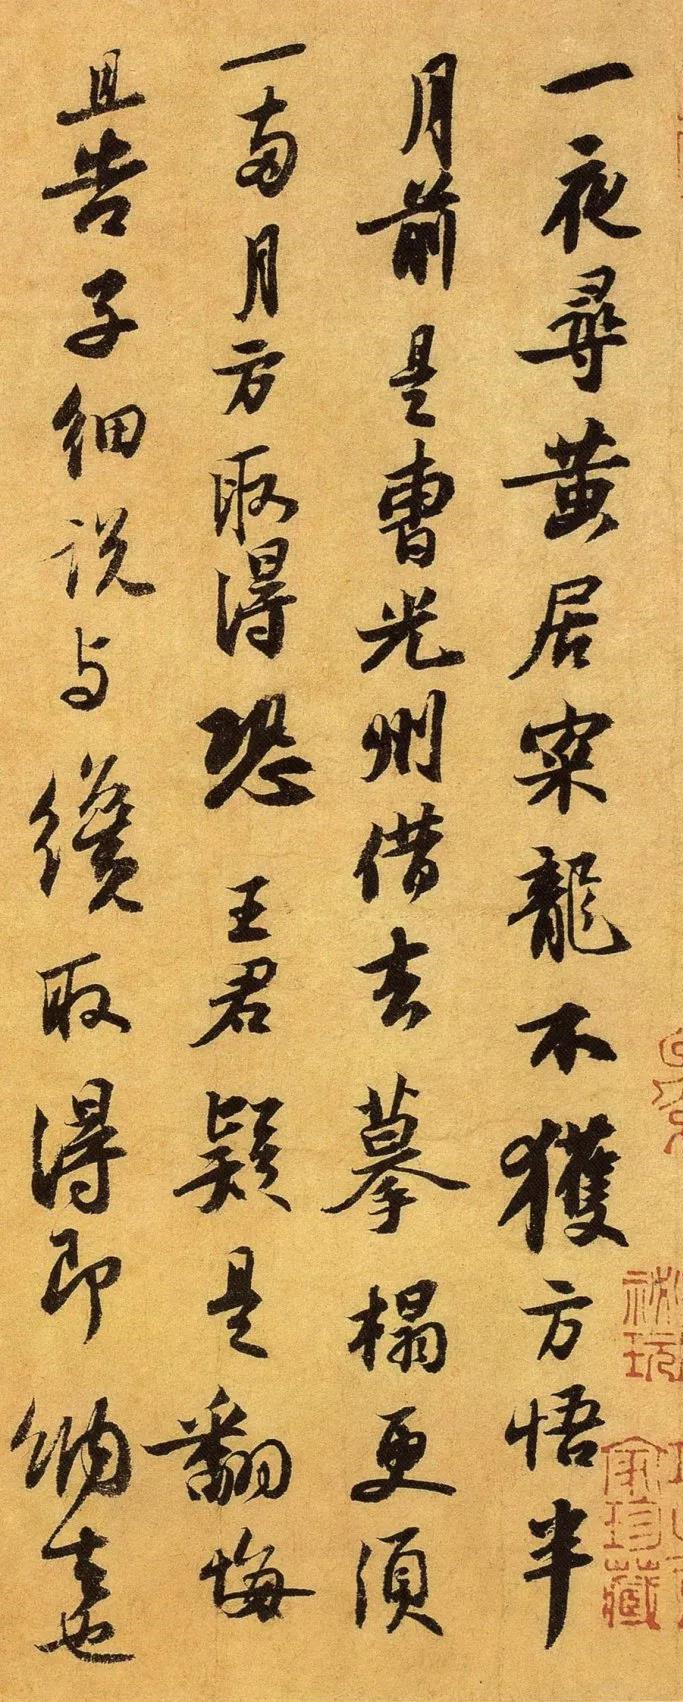 一夜尋黄居寀龍不獲方悟半
月前是曹光州借去摹榻更須
一兩月方取得恐王君疑是翻悔
且告子細說与纔取得即納去也
祕玩
家珍藏